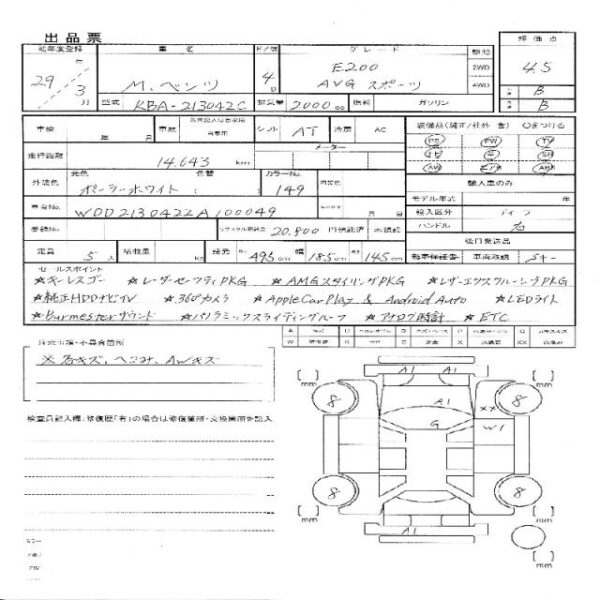 出品票
初年度登録 車名 ドア数 グレード 駆動 評価点
29年 3月 M.ベンツ 4D E200 AVG スポーツ 2WD 4WD 4.5
型式 RBA-213042C 排気量 2000cc 燃料 ガソリン B B
車検 年 月 車歴 シフト AT 冷房 AC 装備品(純正/社外 含) ○をつける
メーター PS PW TV
走行距離 14,643 km SR
外装色 元色 色替 カラーNo. AW ABS
ポーラーホワイト ( ) 149 内装色 輸入車のみ
モデル年式 年
車台No. WDD2130422A100049 月 日 輸入区分 ディーラ
リサイクル預託金 20,800 円 預託済 未預託 ハンドル 右
後日発送品
定員 5人 積載量 kg 諸元 長 493cm 幅 185cm 高 145cm 新車保証書 車両取説
セールスポイント
☆キーレスゴー ☆レーダーセーフティPKG ☆AMGスタイリングPKG ☆レザーエクスクルーシブPKG
☆純正HDDナビTV ☆360°カメラ ☆Apple CarPlay & Android Auto ☆LEDライト
☆Burmesterサウンド ☆パノラミックスライディングルーフ ☆アナログ時計 ☆ETC
注意事項・不具合箇所
※各キズ、ヘコミ、AWキズ
検査員記入欄:修復歴「有」の場合は修復箇所・交換箇所を記入
A1 A1
A1 XX
8 8
G W1
8 8
mm mm
A1
mm mm